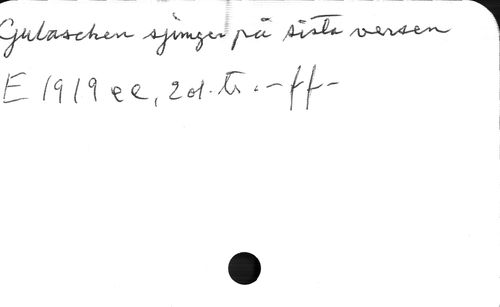 Gulaschen sjunger på sista versen
E 1919 ee, 2 d. tr. -ff-